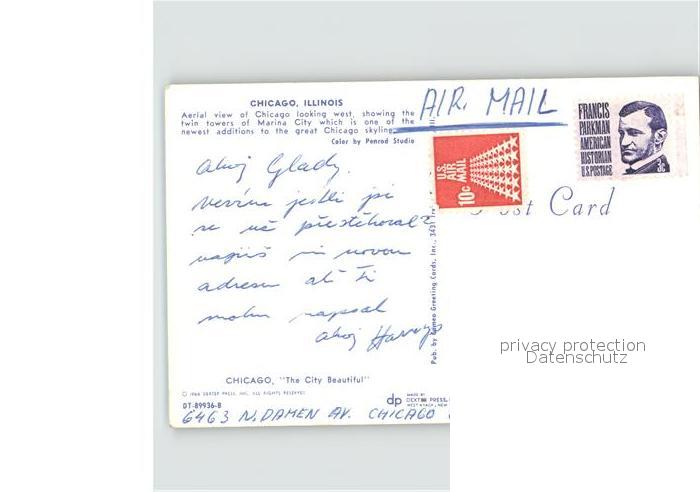 CHICAGO, ILLINOIS
Aerial view of Chicago looking west, showing the
twin towers of Marina City which is one of the
newest additions to the great Chicago skyline.
Color by Penrod Studio
AIR. MAIL
FRANCIS
PARKMAN
AMERICAN
HISTORIAN
U.S. POSTAGE
3c
U.S.
AIR
MAIL
10c
Post Card
Ahoj Glady.
nevím jestli jsi
se už přestěhoval?
napiš mi novou
adresu ať Ti
mohu napsat
ahoj
Pub. by Cameo Greeting Cards, Inc., 3431
privacy protection
Datenschutz
CHICAGO, "The City Beautiful"
© 1966 DEXTER PRESS, INC. ALL RIGHTS RESERVED
DT-89936-B
dp
MADE BY
DEXTER PRESS,
WEST NYACK, NEW
6463 N. DAMEN AV. CHICAGO